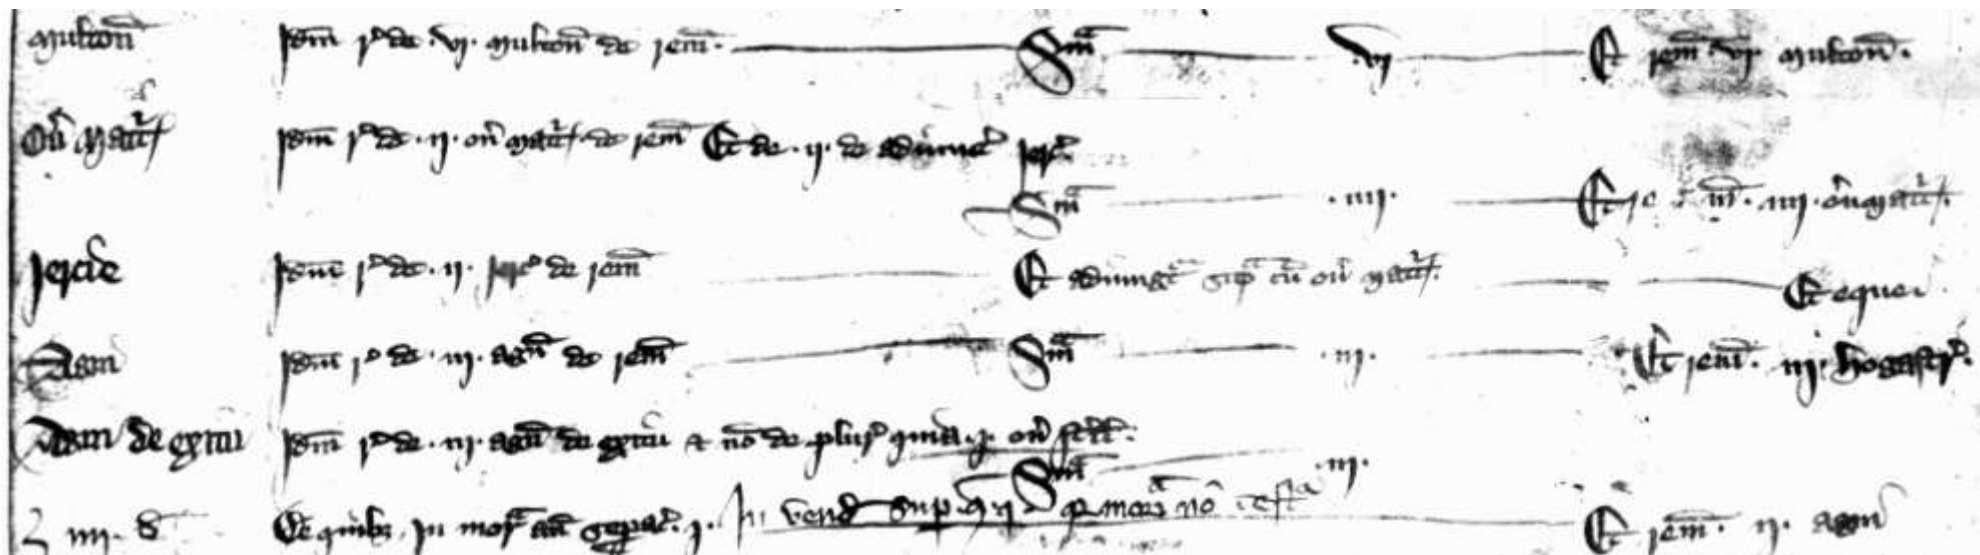 multoñ Idm̄ rᵒ de .vj. multoñ de rem̄. Sm̄ᵃ .vj. Et rem̄ .vj. multoñ.
Oũ mat͛ Idm̄ rᵒ de .ij. oũ mat͛ de rem̄ Et de .ij. de adiunct̃
Sm̄ᵃ .iiij. Et .iiij. oũ mat͛.
Jercie Idm̄ rᵒ de .ij. jerc̃ de rem̄ Et adiungt̃ sup̃ cũ oũ mat͛. Et eque.
Agni Idm̄ rᵒ de .iij. agñ de rem̄ Sm̄ᵃ .iij. Et rem̄. iij. hogastr̃.
Agni de exitu Idm̄ rᵒ de .iij. agñ de exitu & nō de plur̃ quia .j. oũ st̃il̃.
Sm̄ᵃ .iij.
iiij. d̃ De quibz in mor̃ añ sepac̃. j. In vend̃ sup nō Et rem̄. ij. agni